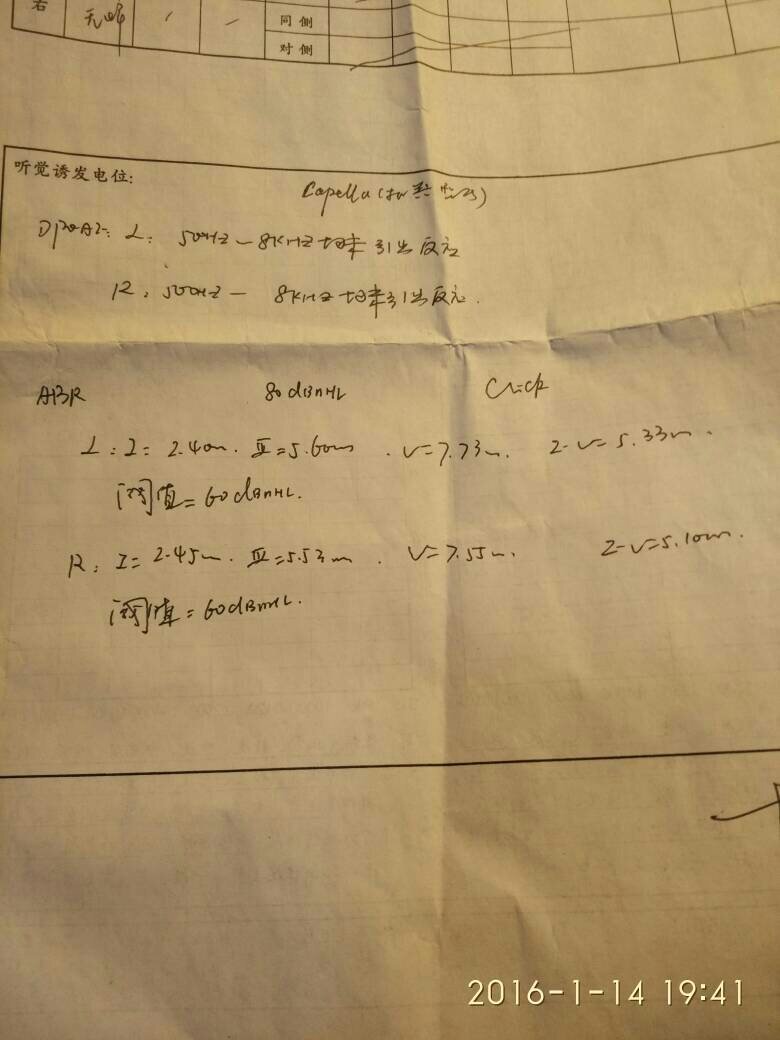 右 无峰 / — 同侧
对侧
听觉诱发电位:
Capella
DPOAE: L: 500HZ — 8KHZ 均未引出反应
R: 500HZ — 8KHZ 均未引出反应.
ABR 80dBnHL Click
L: I= 2.40ms. III=5.60ms. V=7.73ms. I-V=5.33ms.
阈值=60dBnHL.
R: I=2.45ms. III=5.53ms. V=7.55ms. I-V=5.10ms.
阈值=60dBnHL.
2016-1-14 19:41